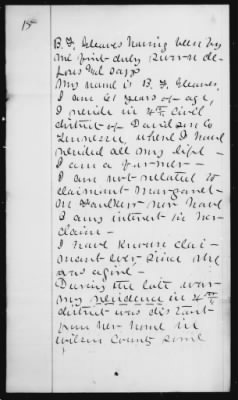 15
B. F. Cleaves having been by
me first duly sworn de-
poses and says
My name is B. F. Cleaves,
I am 61 years of age,
I reside in 4th Civil
district of Davidson Co
Tennessee where I have
resided all my life -
I am a farmer -
I am not related to
claimant Margaret
M. Faulkner nor have
I any interest in her
claim -
I have known clai-
mant ever since she
was a girl -
During the late war
my residence in 4th
district was distant
from her home in
Wilson County some